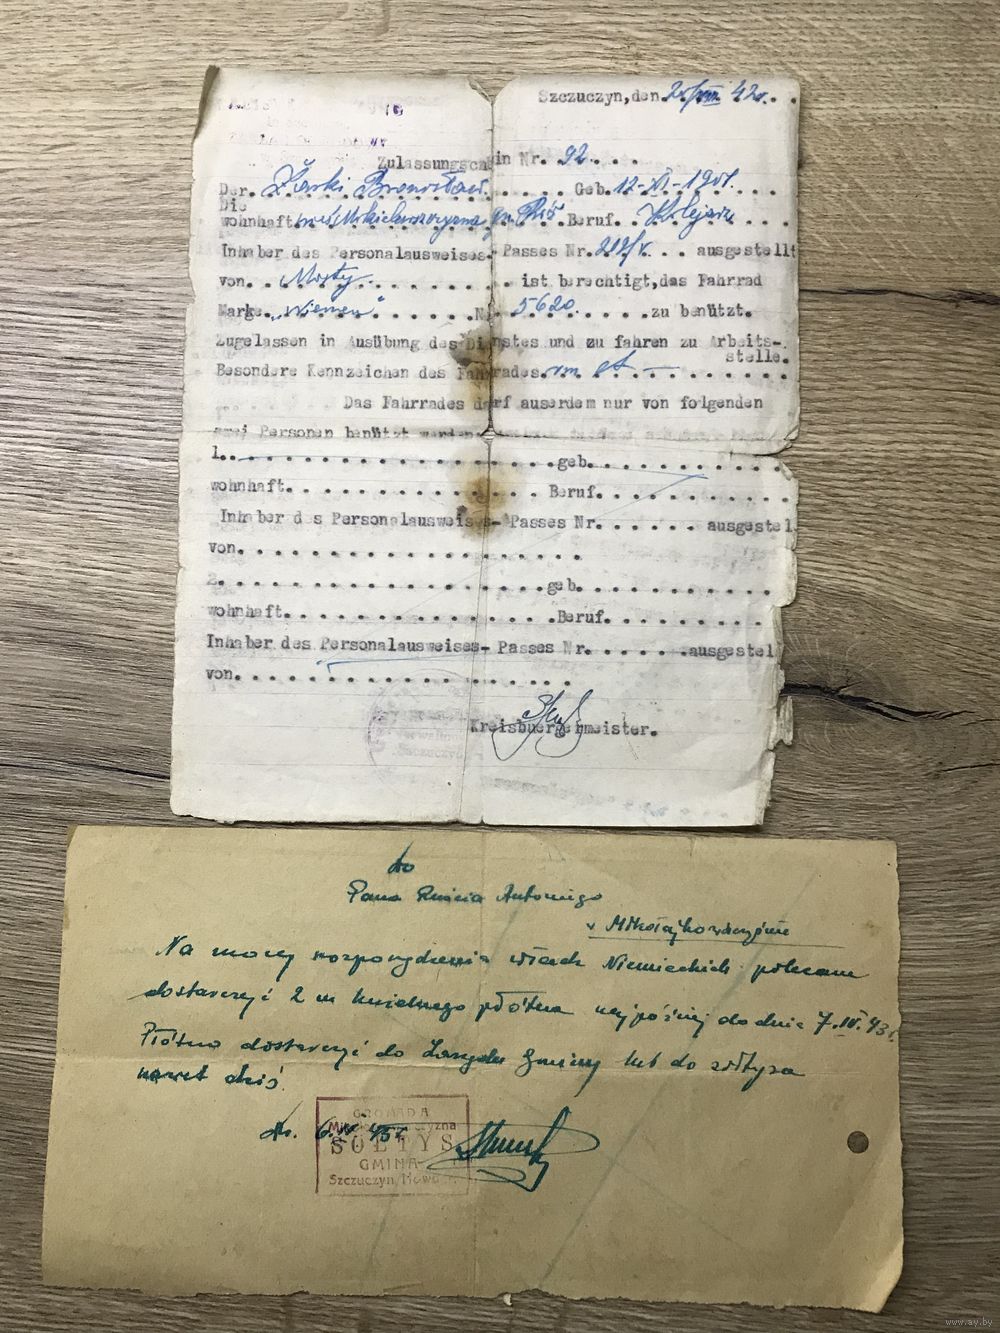 Szczuczyn, den 20/VIII 42r.
Zulassungsschein Nr. 92
Der Żarski Bronisław Geb. 12-XI-1901.
Die
wohnhaft Beruf. Kolejarz
Inhaber des Personalausweises- Passes Nr. ausgestellt
von. Mosty ist berechtigt, das Fahrrad
Marke "Niemen" Nr. 5620. zu benützt.
Zugelassen in Ausübung des Dienstes und zu fahren zu Arbeits-
stelle.
Besondere Kennzeichen des Fahrrades.
Das Fahrrades darf auserdem nur von folgenden
zwei Personen benützt werden
1. geb.
wohnhaft. Beruf.
Inhaber des Personalausweises- Passes Nr. ausgestel
von.
2. geb.
wohnhaft. Beruf.
Inhaber des Personalausweises- Passes Nr. ausgestel
von.
Kreisbuergermeister.
Szczuczyn
do
Pana Antoniego
w Mikołajkowszczyźnie
Na mocy rozporządzenia władz Niemieckich polecam
dostarczyć 2 m lnianego płótna najpóźniej do dnia 7.IV.43r.
Płótno dostarczyć do Zarządu Gminy lub do sołtysa
nawet dziś.
dn. 6.IV
GROMADA
SOŁTYS
GMINA
Szczuczyn Nowo
www.ay.by